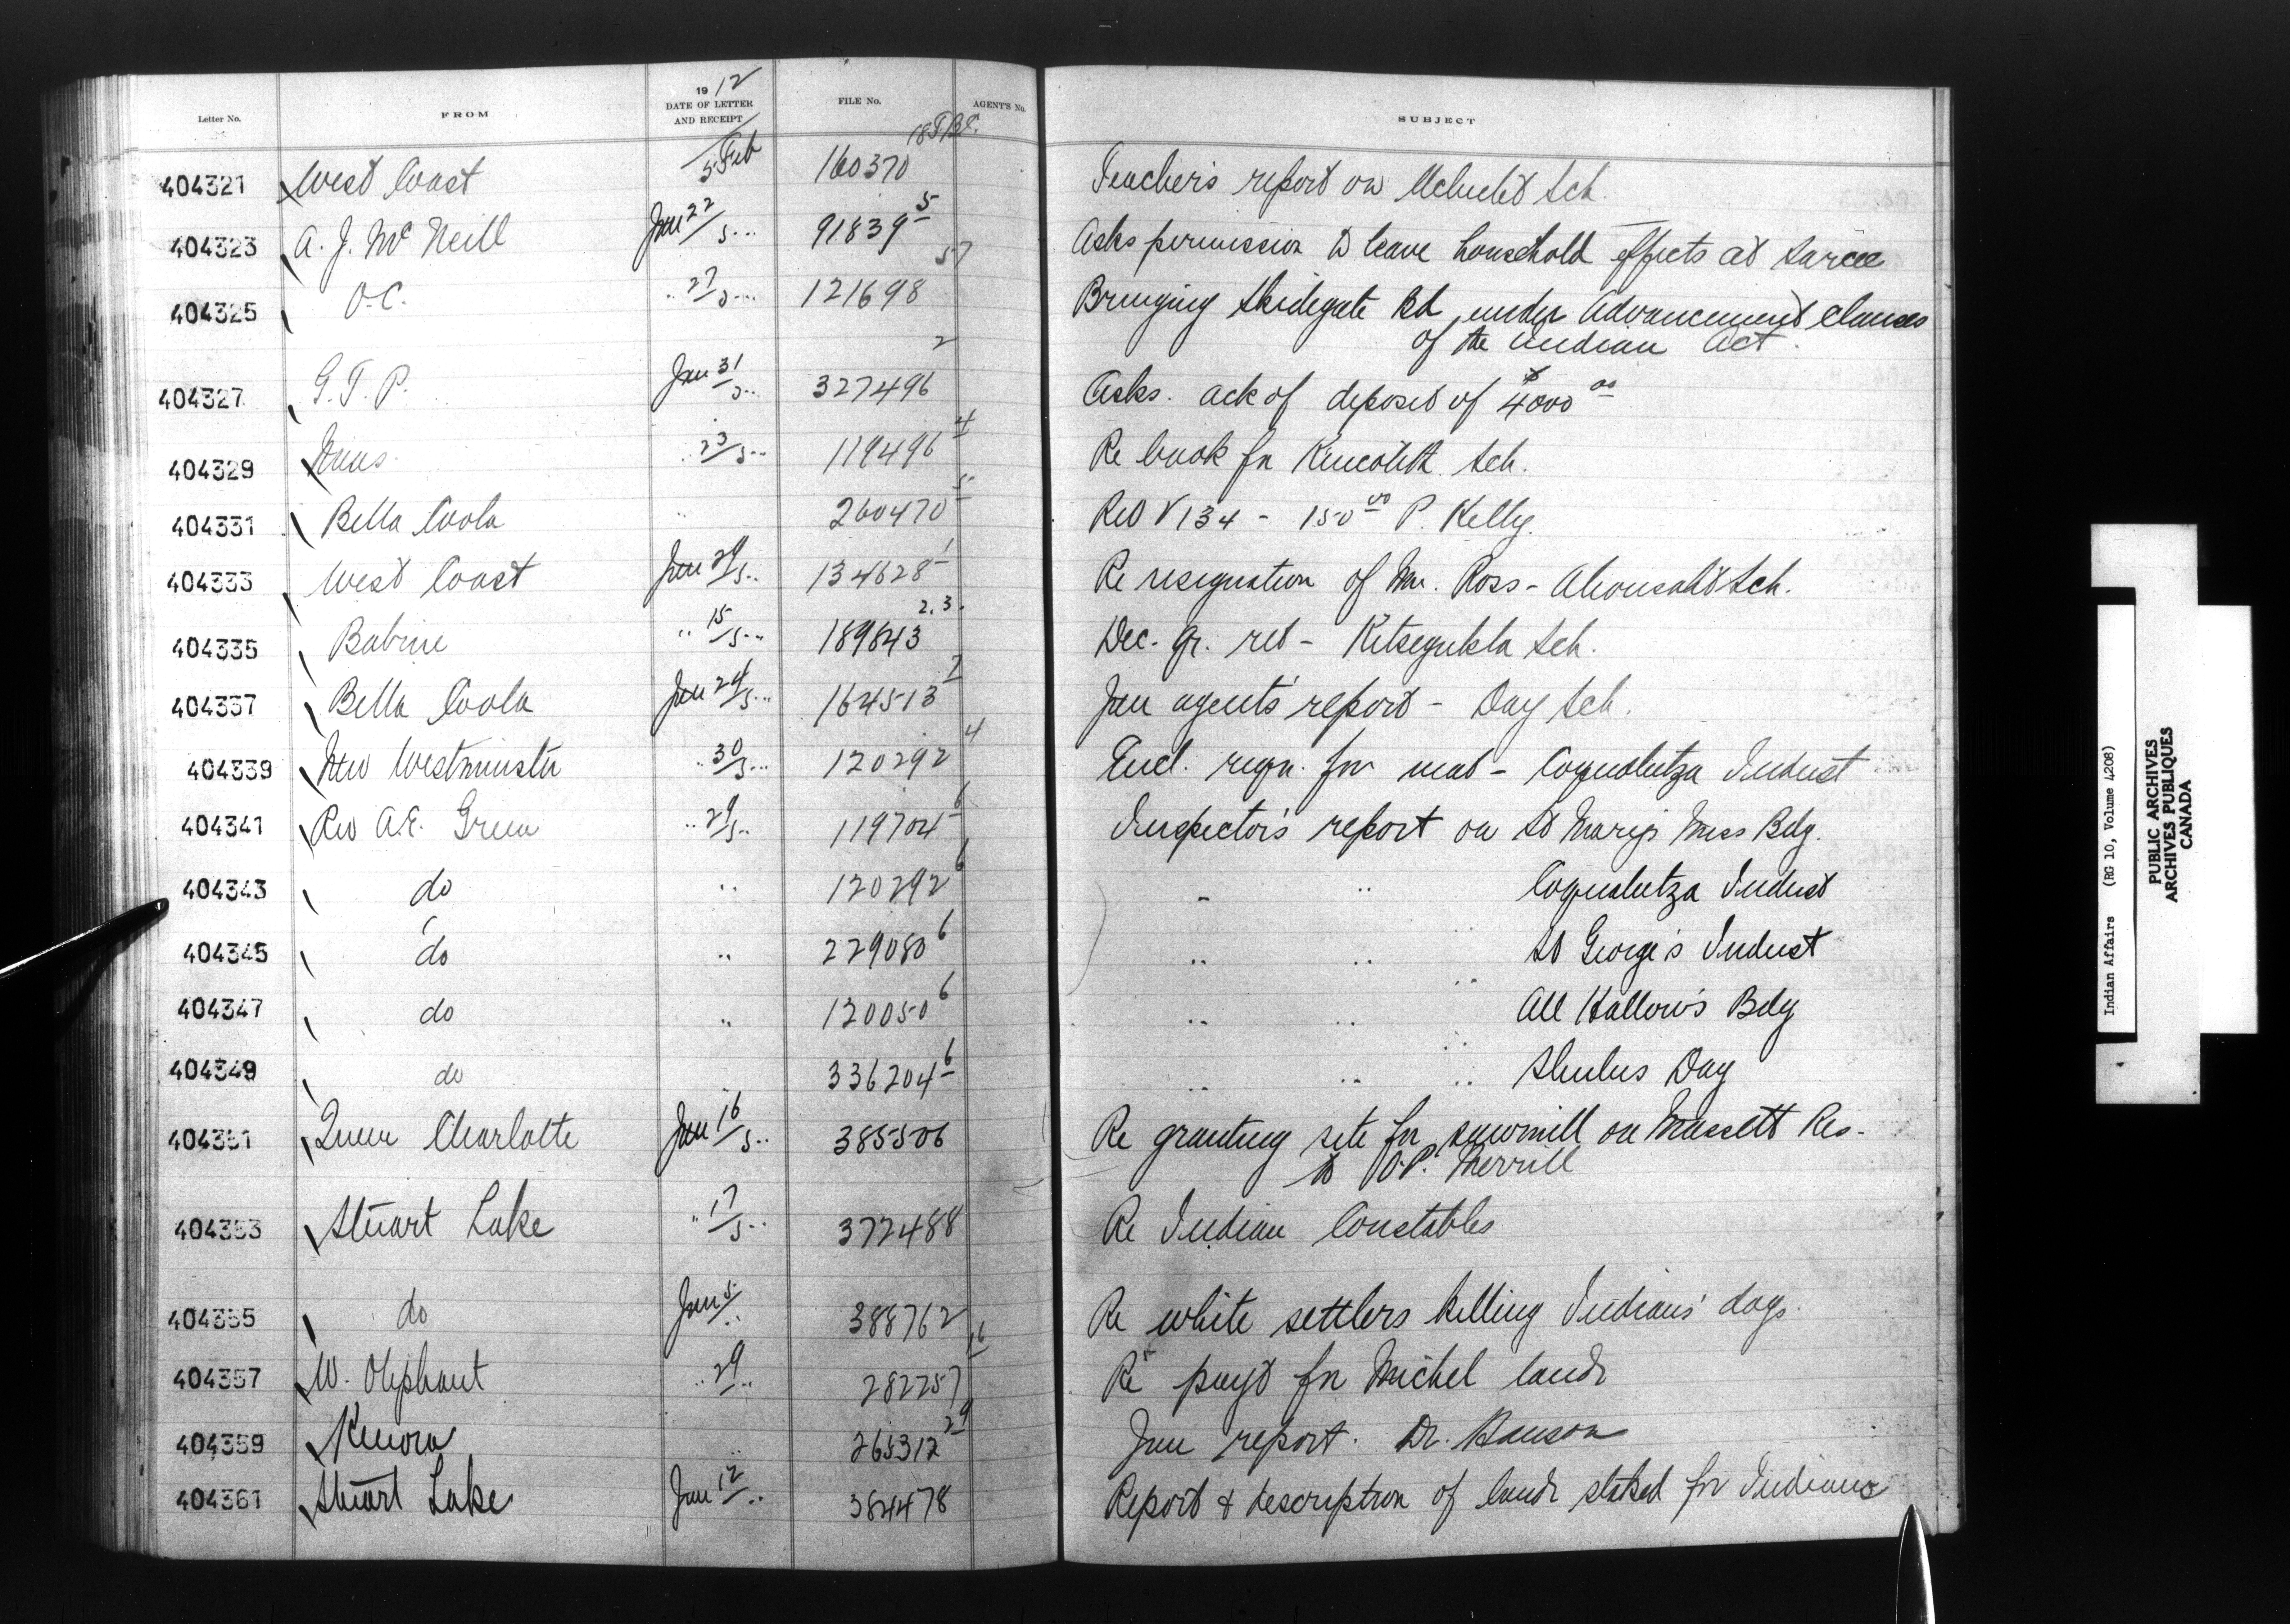 Letter No. FROM 1912 DATE OF LETTER AND RECEIPT FILE No. AGENT'S No. SUBJECT
404321 West Coast 5 Feb 160370 Teacher's report on Ucluelet Sch.
404323 A. J. McNeill Jan 22/5 91839 5 Asks permission to leave household effects at Sarcee
404325 O.C. .. 27/5 121698 57 Bringing Skidegate Bd under Advancement clauses
of the Indian Act.
404327 G.T.P. Jan 31/5 327496 2 Asks. ack of deposit of $4000 00
404329 .. 23/5 119496 4 Re book for Kincolith Sch.
404331 Bella Coola .. 260470 5 Ret V 134 - 150 00 P. Kelly.
404333 West Coast Jan 29/5 134628 1 Re resignation of Mr. Ross - Ahousaht Sch.
404335 Babine .. 15/5 189843 2,3. Dec. qr. ret - Kitsegukla Sch.
404337 Bella Coola Jan 24/5 164513 7 Jan agent's report - Day Sch.
404339 New Westminster .. 30/5 120292 4 Encl. reqn. for mat - Coqualeetza Indust
404341 Rev A.E. Green .. 29/5 119704 6 Inspector's report on St Mary's Miss Bdg.
404343 do .. 120292 6 - .. Coqualeetza Indust
404345 do .. 229080 6 .. .. .. St George's Indust
404347 do .. 120050 6 .. .. .. All Hallow's Bdg
404349 do .. 336204 6 .. .. .. Shulus Day
404351 Queen Charlotte Jan 16/5 385506 Re granting site for sawmill on Massett Res.
to O.P. Merrill
404353 Stuart Lake .. 17/5 372488 Re Indian Constables
404355 do Jan 5/.. 388762 Re white settlers killing Indians' dogs.
404357 W. Oliphant .. 29/.. 282257 16 Re payt for Michel lands
404359 Kenora .. 265312 29 Jan report. Dr. Hanson
404361 Stuart Lake Jan 12/.. 384478 Report & description of lands staked for Indians
Indian Affairs (RG 10, Volume 4208)
PUBLIC ARCHIVES
ARCHIVES PUBLIQUES
CANADA